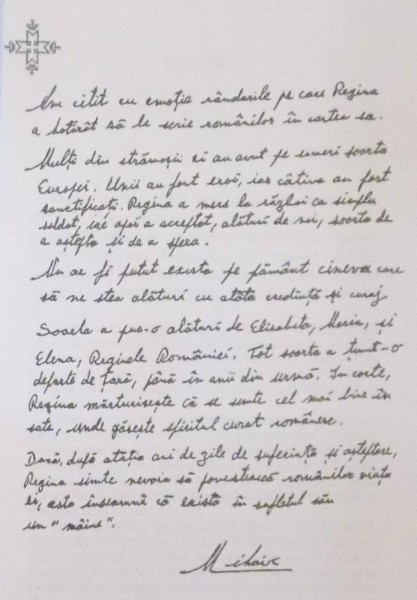 Am citit cu emoție rândurile pe care Regina
a hotărât să le scrie românilor în cartea sa.
Mulți din strămoșii ei au avut pe umeri soarta
Europei. Unii au fost eroi, iar câțiva au fost
sanctificați. Regina a mers la război ca simplu
soldat, iar apoi a acceptat, alături de noi, soarta de
a aștepta și de a spera.
Nu ar fi putut exista pe pământ cineva care
să ne stea alături cu atâta credință și curaj
Soarta a pus-o alături de Elisabeta, Maria, și
Elena, Reginele României. Tot soarta a ținut-o
departe de țară, până în anii din urmă. In carte,
Regina mărturisește că se simte cel mai bine în
sate, unde găsește spiritul curat românesc.
Dacă, după atâția ani de zile de suferință și așteptare,
Regina simte nevoia să povestească românilor viața
ei, asta înseamnă că există în sufletul său
un "mâine".
Mihai R